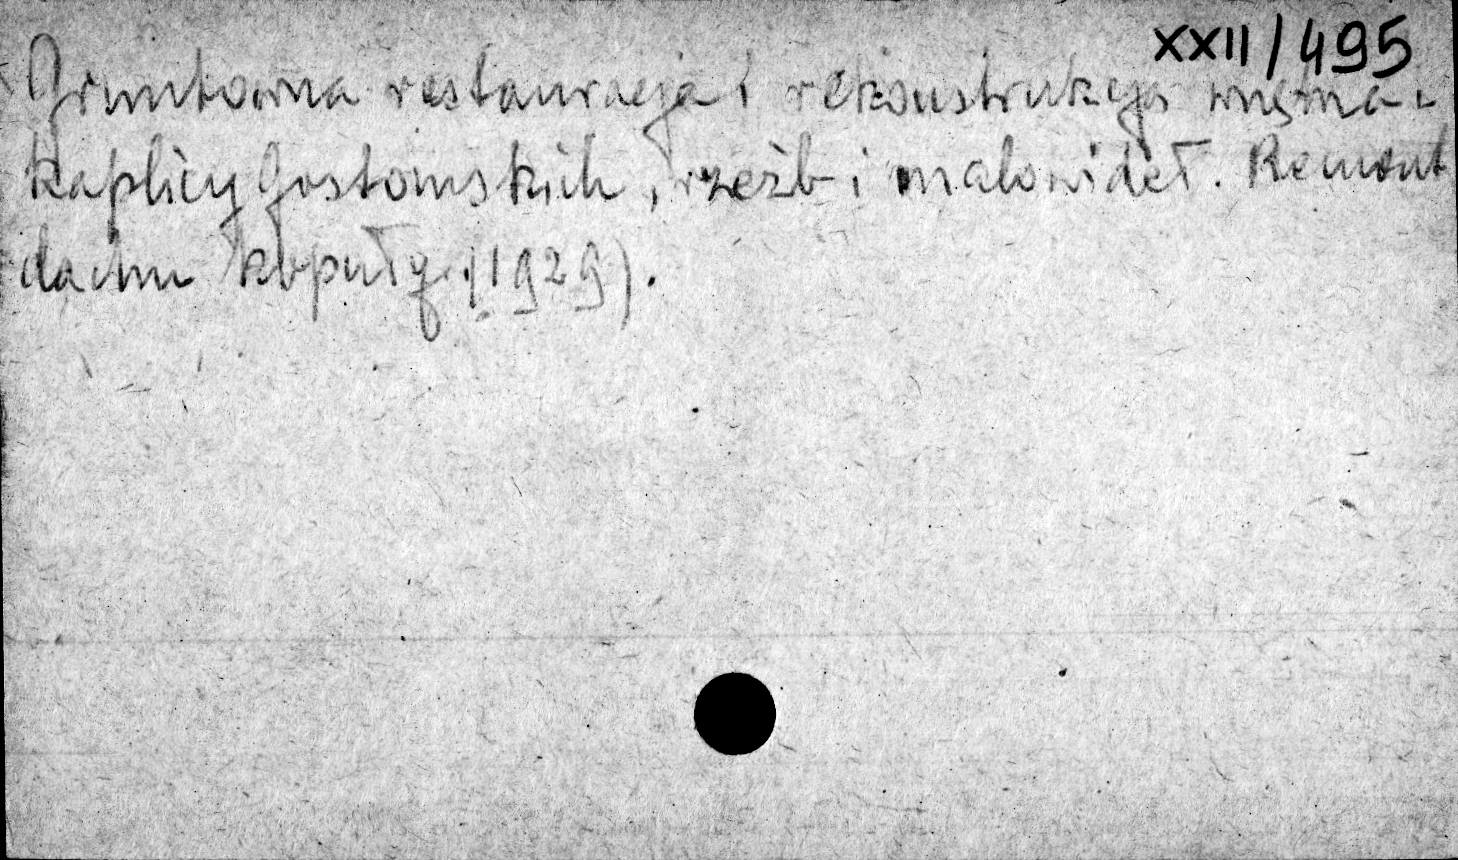 XXII/495
Gruntowna restauracja i rekonstrukcja wnętrza
kaplicy Gostomskich, rzeźb i malowideł. Remont
dachu kopułą (1929).